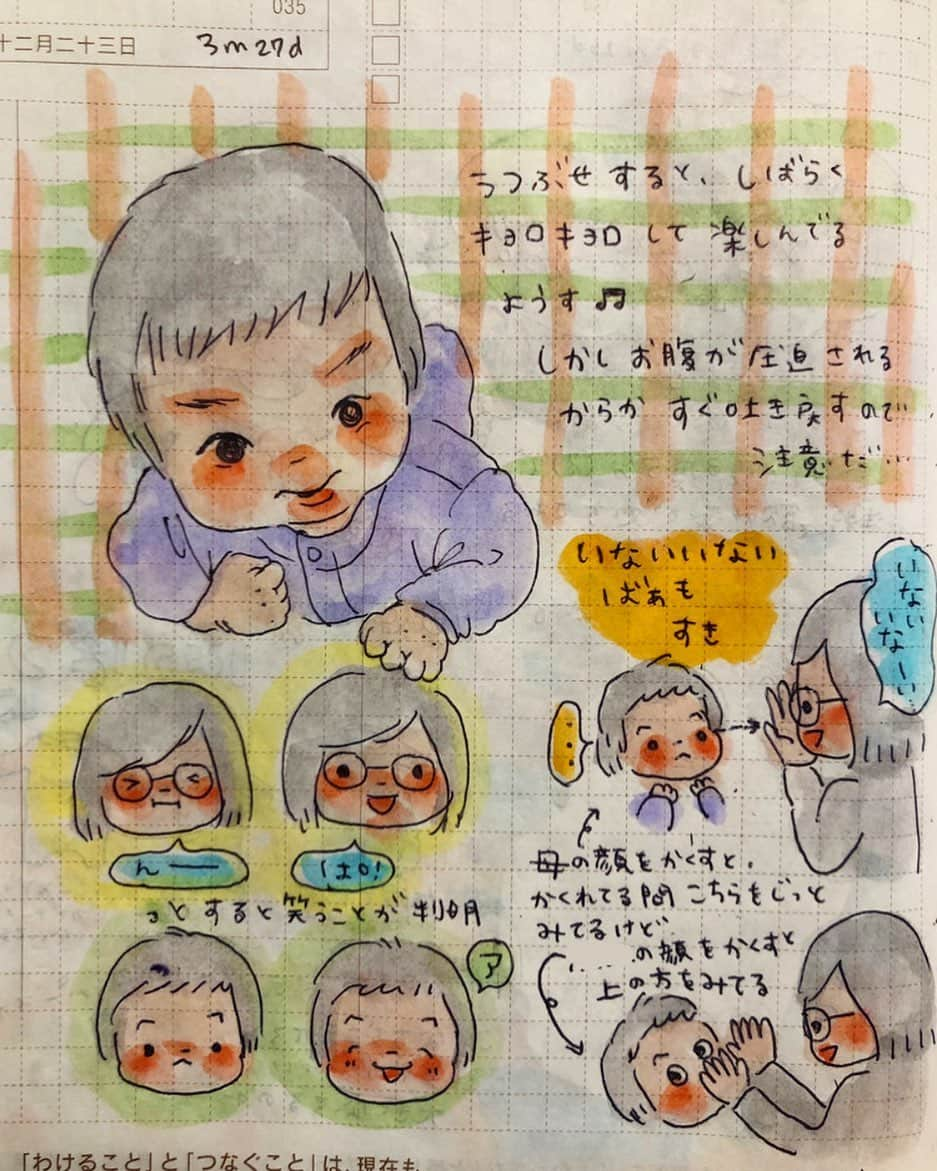 035
十二月二十三日
3m27d
うつぶせすると、しばらく
キョロキョロして楽しんでる
ようす♫
しかしお腹が圧迫される
からか すぐ吐き戻すので
注意だ…
いないいない
ばぁも
すき
いない
いなーい
....
んーー
「はo!
とすると笑うことが判明
ア
母の顔をかくすと、
かくれてる間こちらをじっと
みてるけど
....の顔をかくすと
上の方をみてる
「わけること」と「つなぐこと」は、現在も